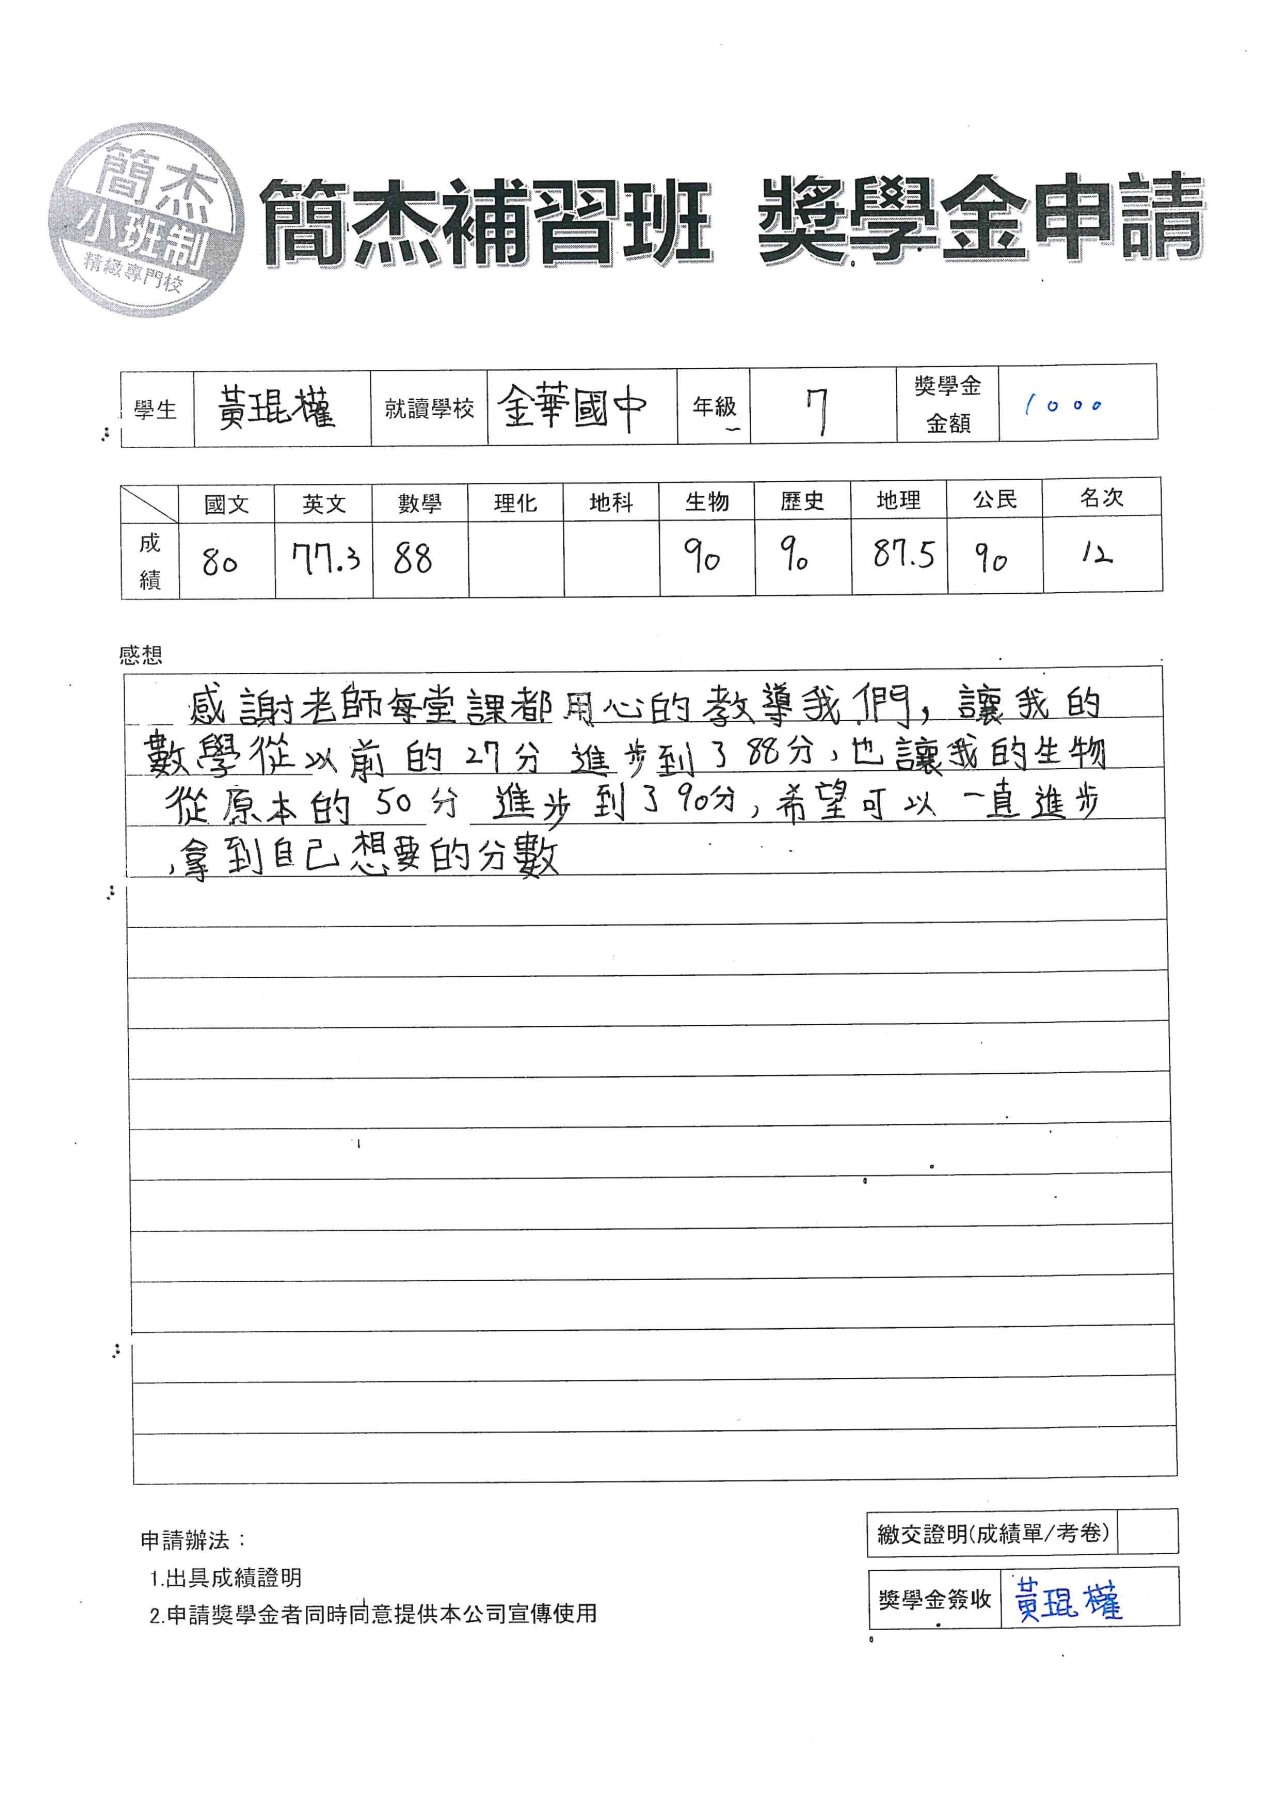 簡杰
小班制
精緻專門校
簡杰補習班 獎學金申請
學生 黃琨權 就讀學校 金華國中 年級 7 獎學金金額 1000
國文 英文 數學 理化 地科 生物 歷史 地理 公民 名次
成績 80 77.3 88 90 90 87.5 90 12
感想
感謝老師每堂課都用心的教導我們，讓我的
數學從以前的27分 進步到了88分，也讓我的生物
從原本的50分 進步到了90分，希望可以一直進步
，拿到自己想要的分數
申請辦法：
1.出具成績證明
2.申請獎學金者同時同意提供本公司宣傳使用
繳交證明(成績單/考卷)
獎學金簽收 黃琨權